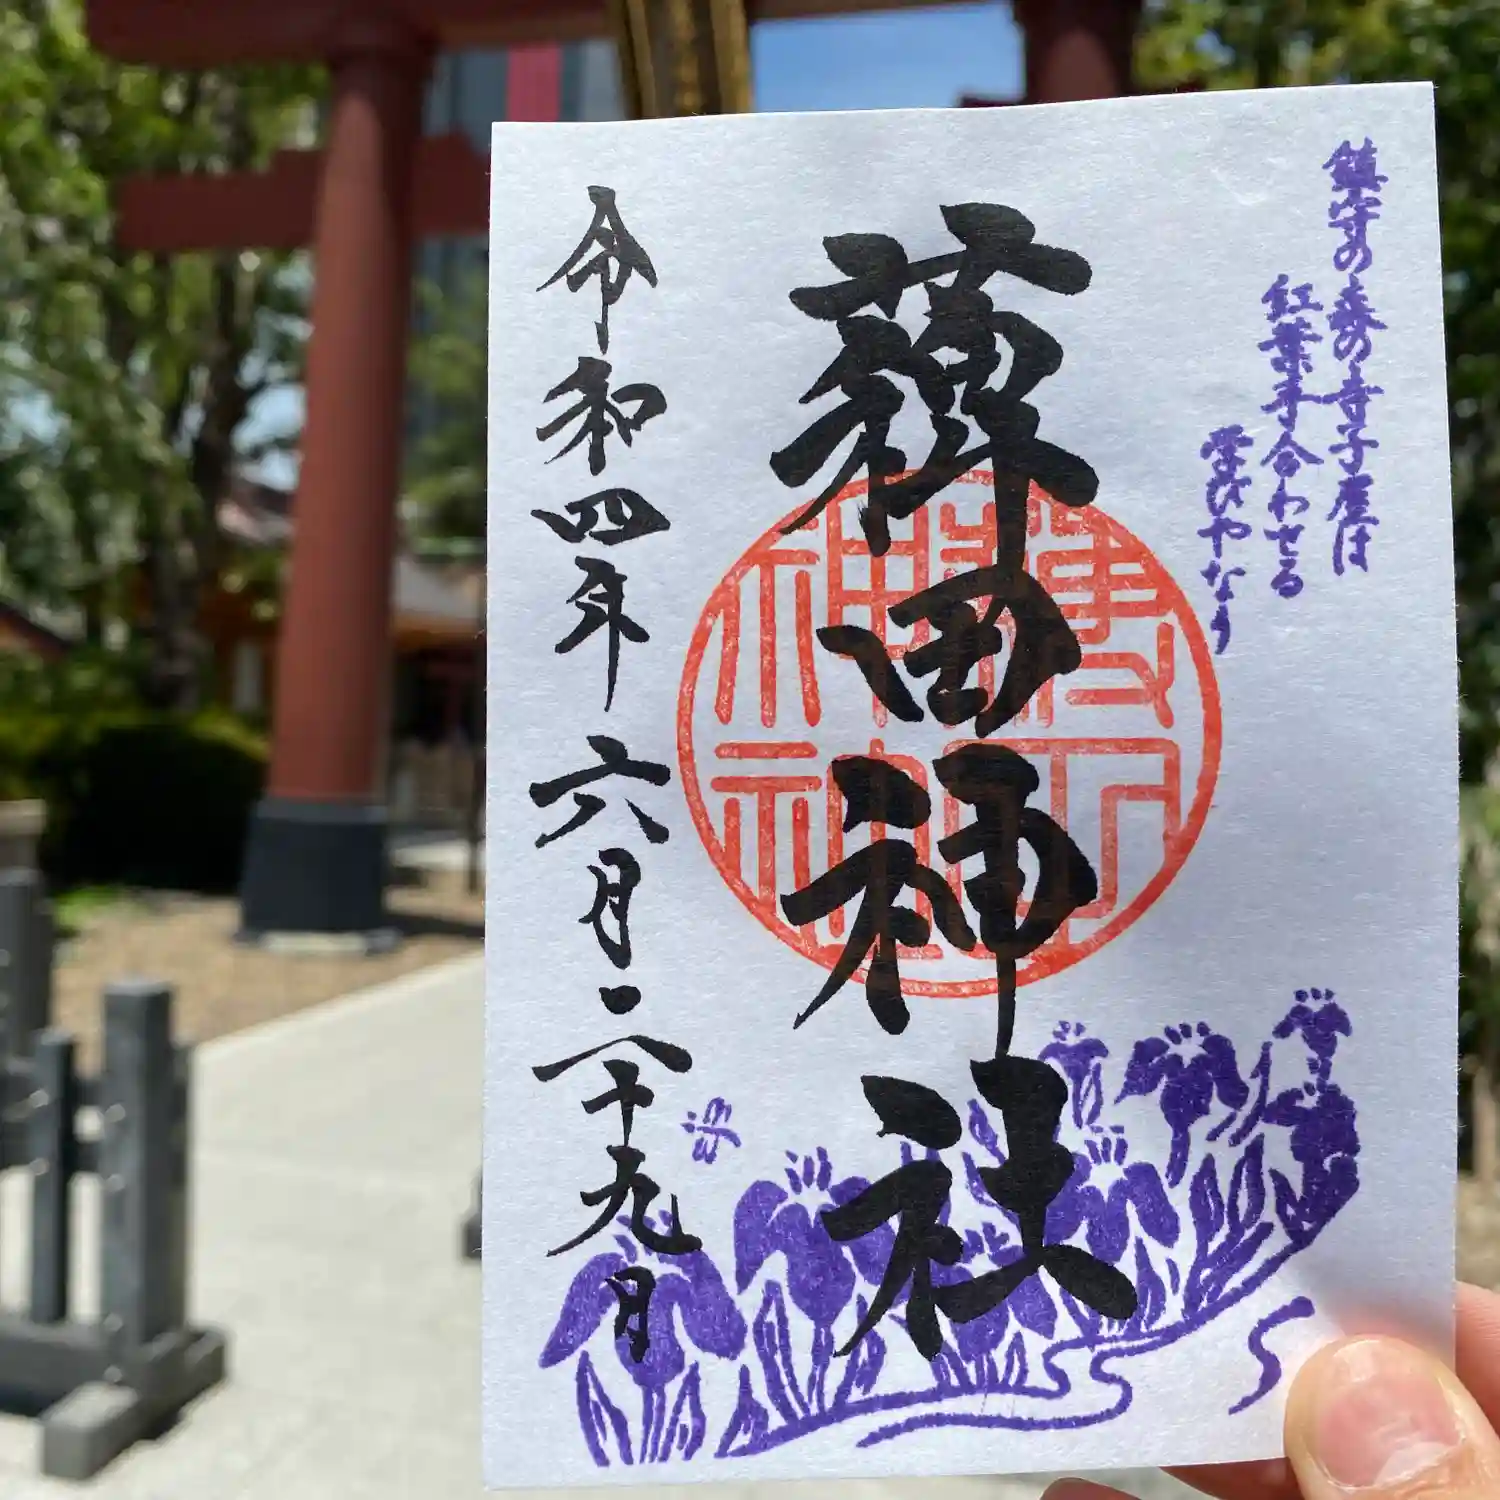 鎮守の森の寺子屋は
紅葉手合わせる
学びやなり
薭田神社
令和四年六月二十九日